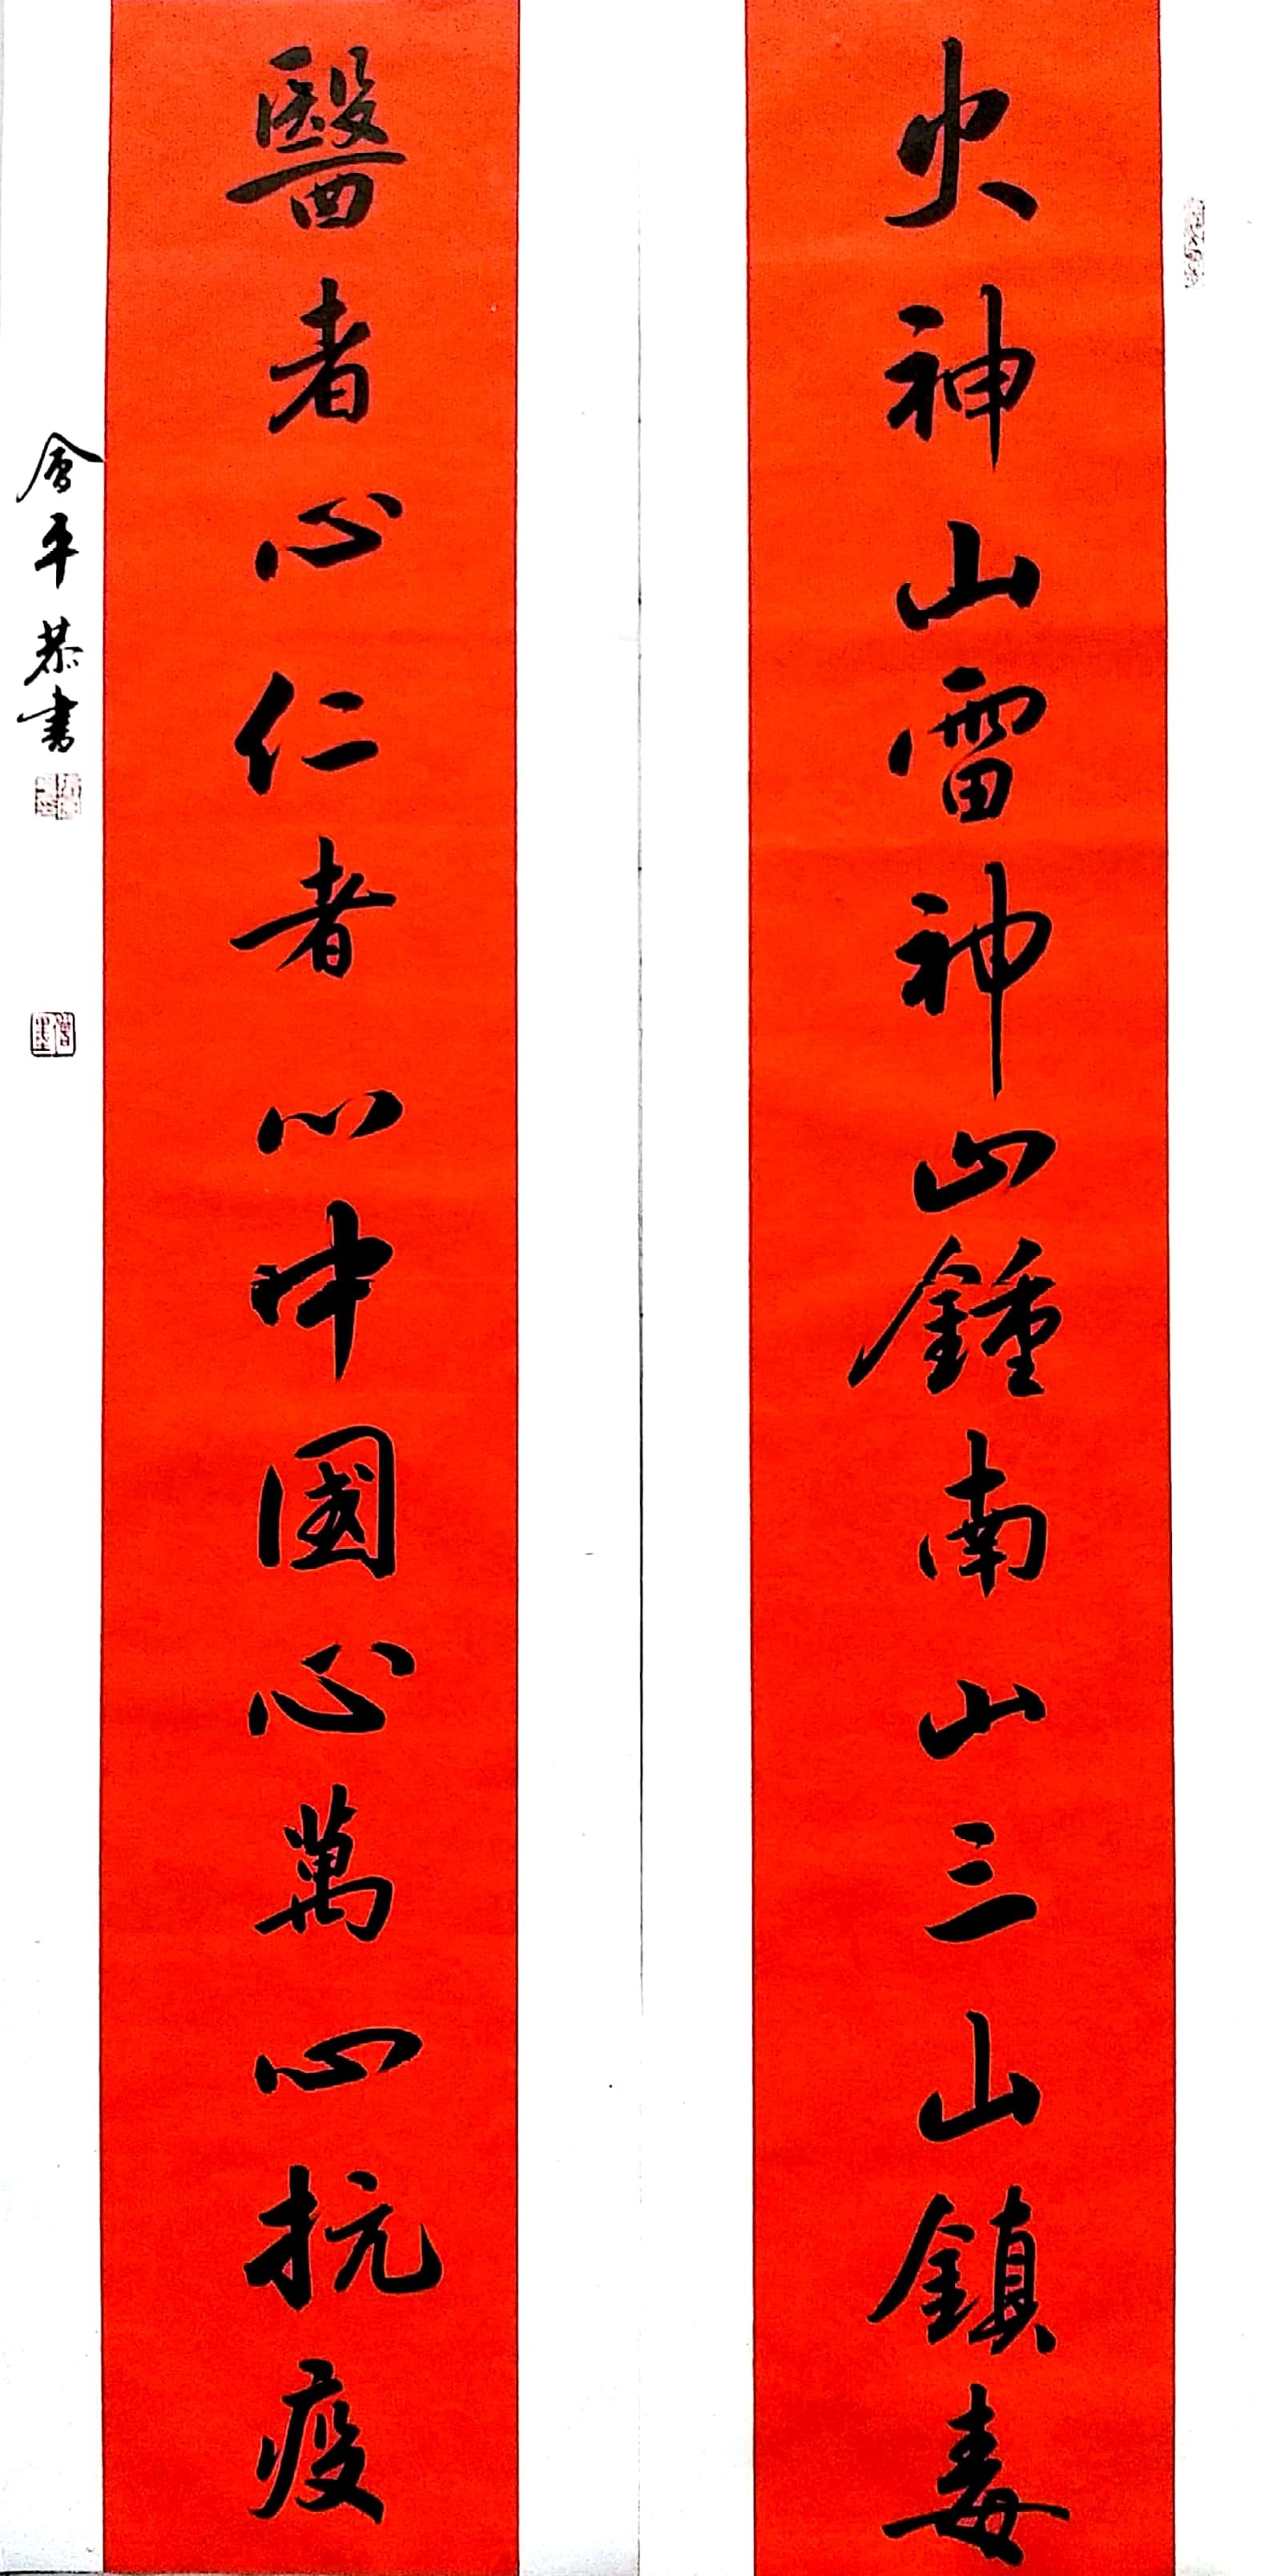 火神山雷神山鍾南山三山鎮毒
醫者心仁者心中國心萬心抗疫
會平恭書